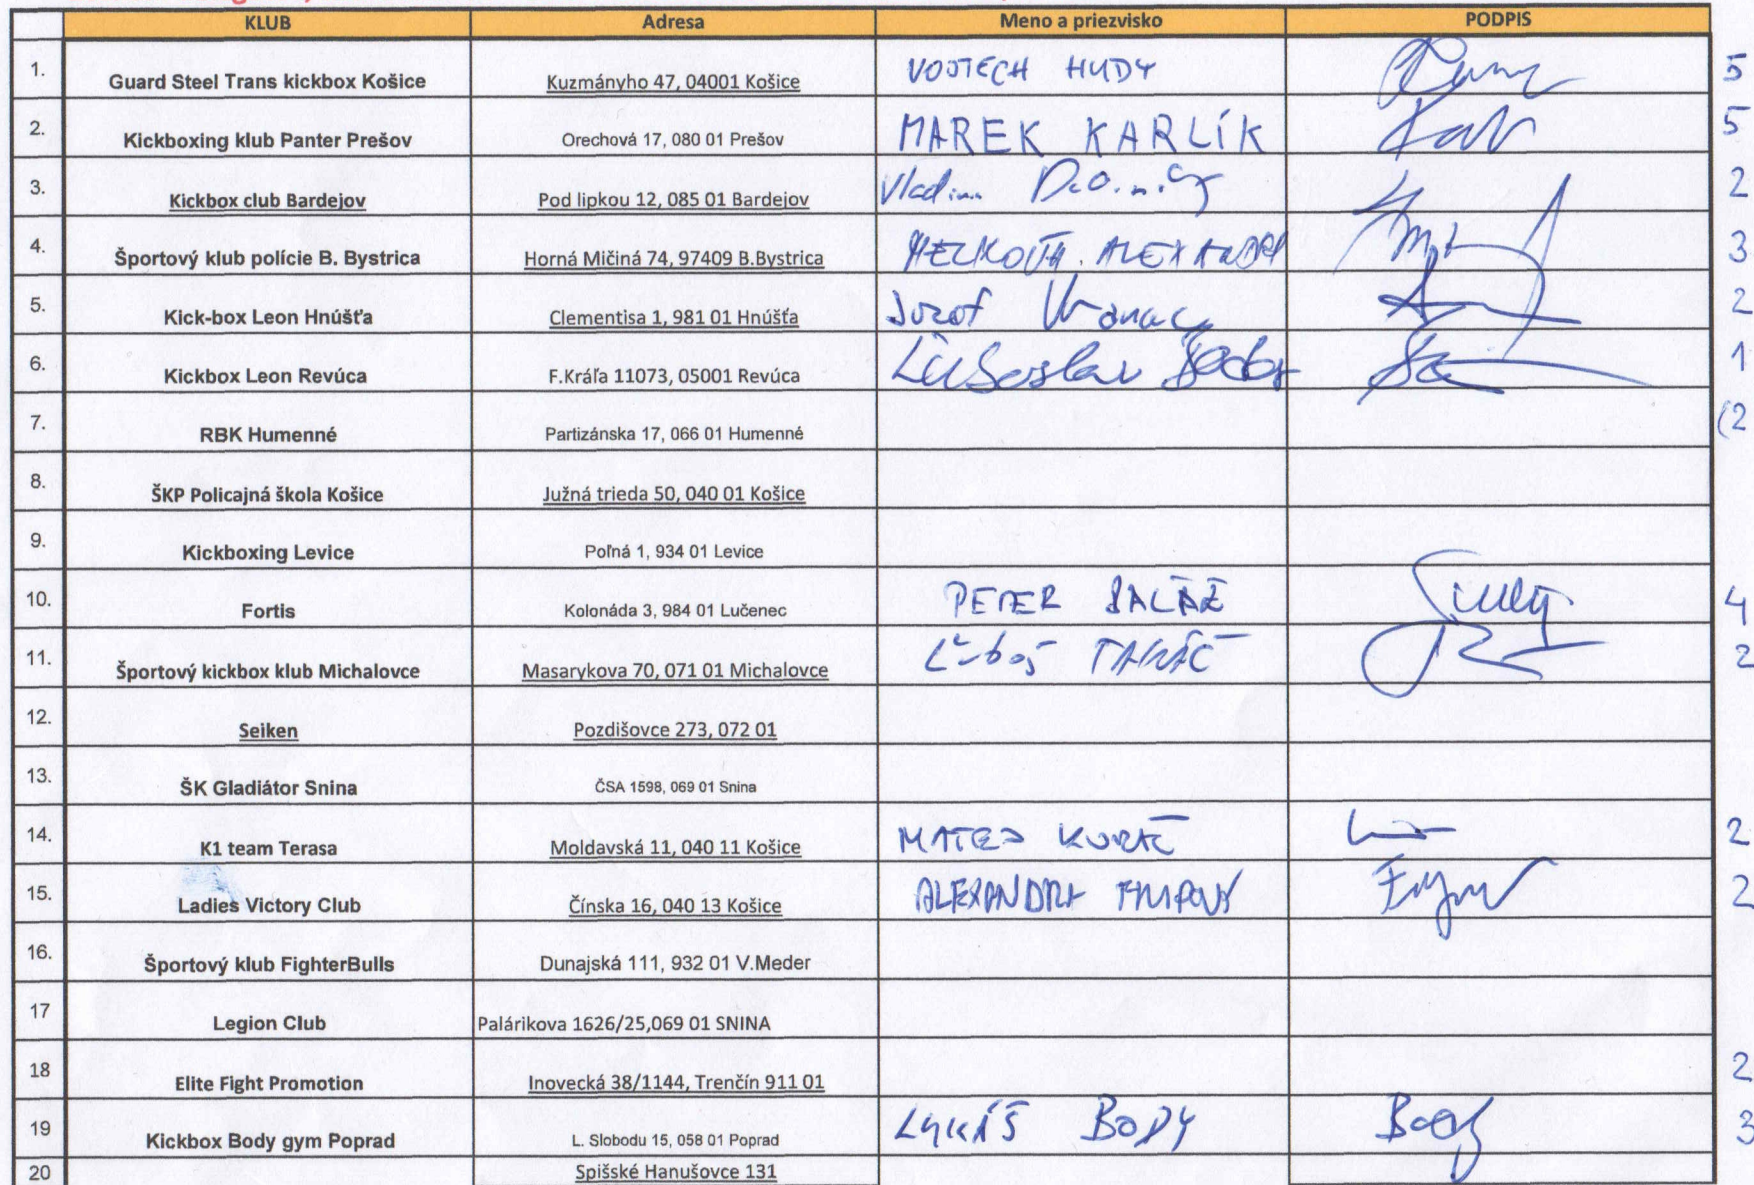 KLUB Adresa Meno a priezvisko PODPIS
1. Guard Steel Trans kickbox Košice Kuzmányho 47, 04001 Košice VOJTECH HUDY 5
2. Kickboxing klub Panter Prešov Orechová 17, 080 01 Prešov MAREK KARLÍK 5
3. Kickbox club Bardejov Pod lipkou 12, 085 01 Bardejov 2
4. Športový klub polície B. Bystrica Horná Mičiná 74, 97409 B.Bystrica 3
5. Kick-box Leon Hnúšťa Clementisa 1, 981 01 Hnúšťa Jozef 2
6. Kickbox Leon Revúca F.Kráľa 11073, 05001 Revúca Ľuboslav 1
7. RBK Humenné Partizánska 17, 066 01 Humenné (2
8. ŠKP Policajná škola Košice Južná trieda 50, 040 01 Košice
9. Kickboxing Levice Poľná 1, 934 01 Levice
10. Fortis Kolonáda 3, 984 01 Lučenec PETER BALÁŽ 4
11. Športový kickbox klub Michalovce Masarykova 70, 071 01 Michalovce Ľuboš TAKÁČ 2
12. Seiken Pozdišovce 273, 072 01
13. ŠK Gladiátor Snina ČSA 1598, 069 01 Snina
14. K1 team Terasa Moldavská 11, 040 11 Košice MATEJ 2
15. Ladies Victory Club Čínska 16, 040 13 Košice ALEXANDRA 2
16. Športový klub FighterBulls Dunajská 111, 932 01 V.Meder
17 Legion Club Palárikova 1626/25,069 01 SNINA
18 Elite Fight Promotion Inovecká 38/1144, Trenčín 911 01 2
19 Kickbox Body gym Poprad L. Slobodu 15, 058 01 Poprad LUKÁŠ BODY Body 3
20 Spišské Hanušovce 131